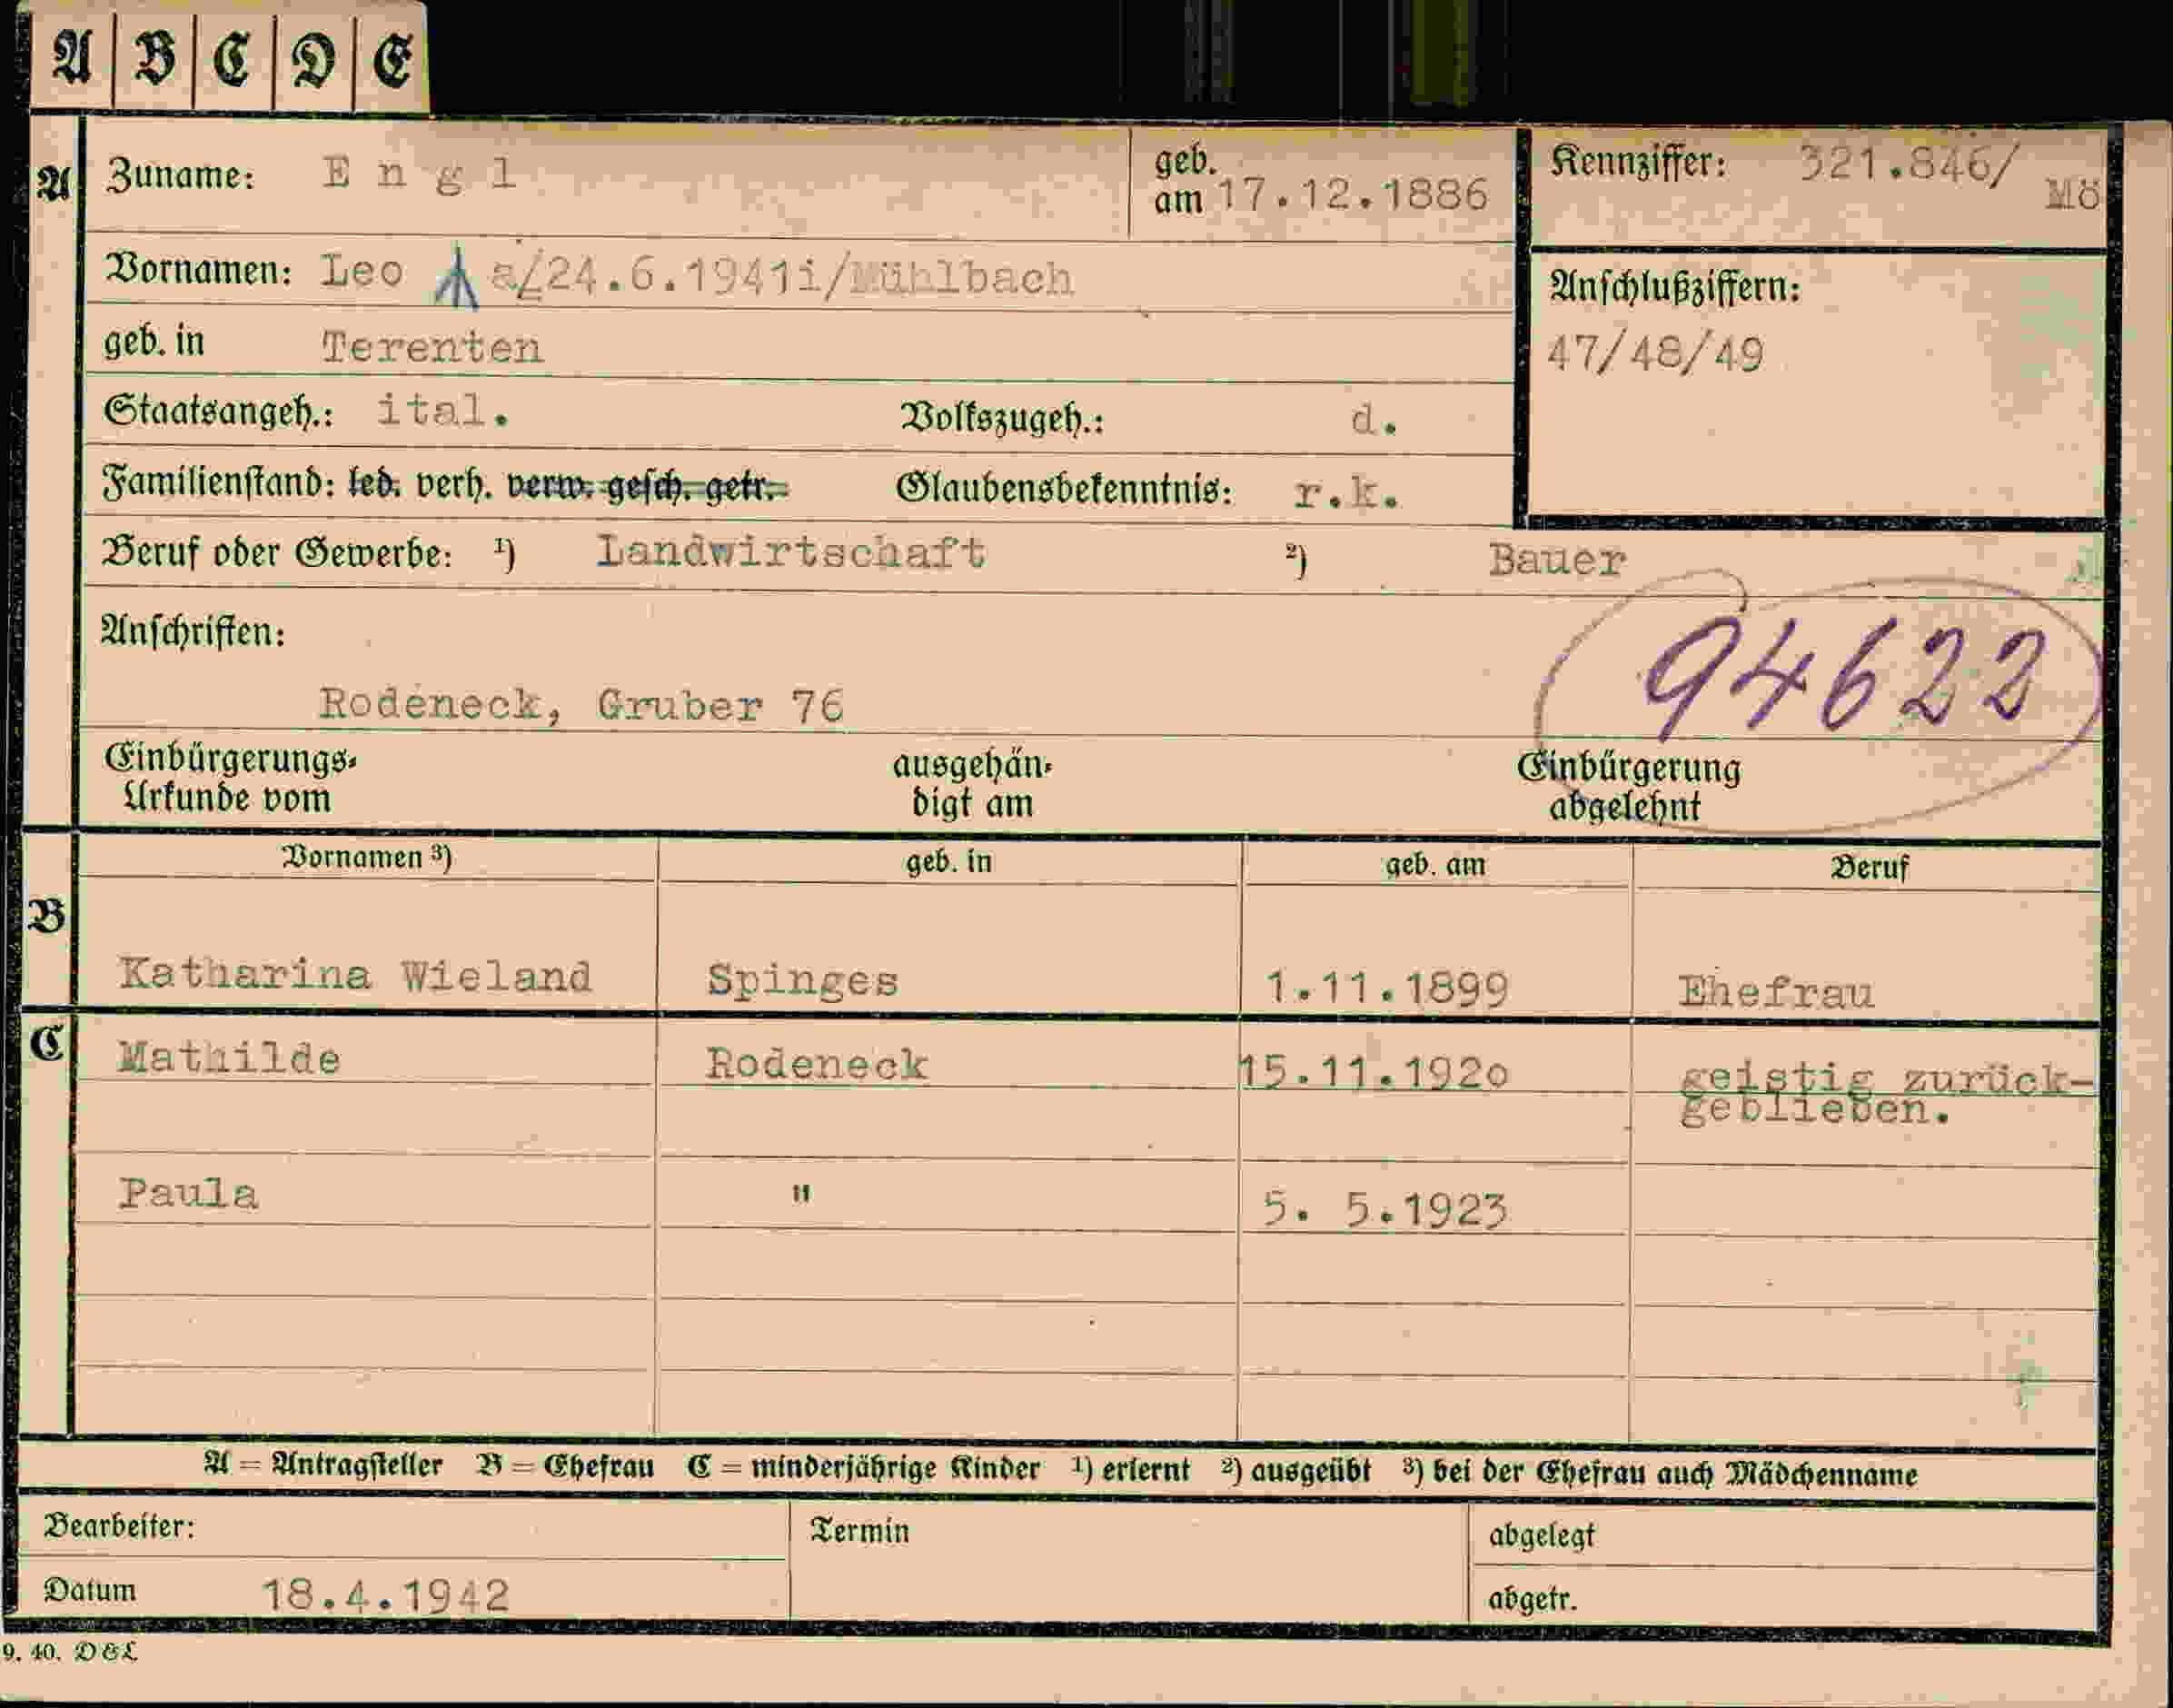 A B C D E
A Zuname: E n g l geb. am 17.12.1886 Kennziffer: 321.846/ Mö
Vornamen: Leo a/24.6.1941i/Mühlbach Anschlußziffern:
geb. in Terenten 47/48/49
Staatsangeh.: ital. Volkszugeh.: d.
Familienstand: led. verh. verw. gesch. getr. Glaubensbekenntnis: r.k.
Beruf oder Gewerbe: ¹) Landwirtschaft ²) Bauer
Anschriften:
94622
Rodeneck, Gruber 76
Einbürgerungs- ausgehän- Einbürgerung
Urkunde vom digt am abgelehnt
Vornamen ³) geb. in geb. am Beruf
B
Katharina Wieland Spinges 1.11.1899 Ehefrau
C Mathilde Rodeneck 15.11.1920 geistig zurück-
geblieben.
Paula " 5. 5.1923
A = Antragsteller B = Ehefrau C = minderjährige Kinder ¹) erlernt ²) ausgeübt ³) bei der Ehefrau auch Mädchenname
Bearbeiter: Termin abgelegt
Datum 18.4.1942 abgetr.
9. 40. D&L